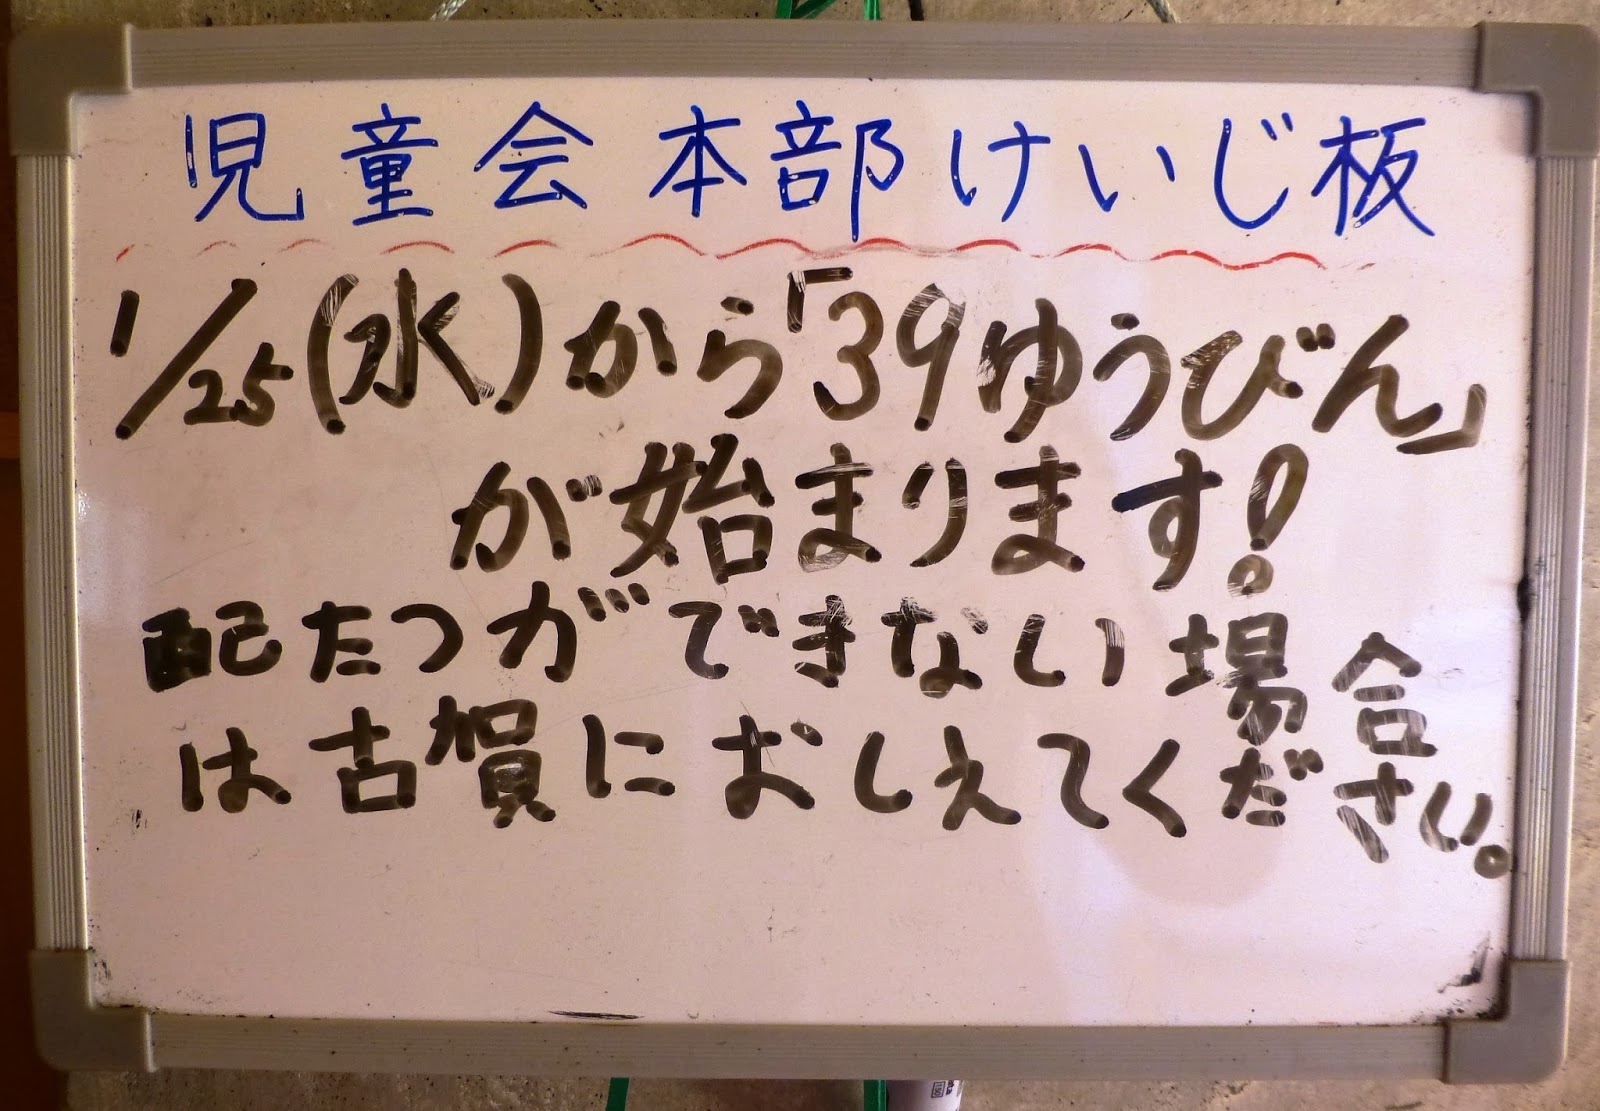 児童会本部けいじ板
1/25(水)から「39ゆうびん」
が始まります!
配たつができない場合
は古賀におしえてください。